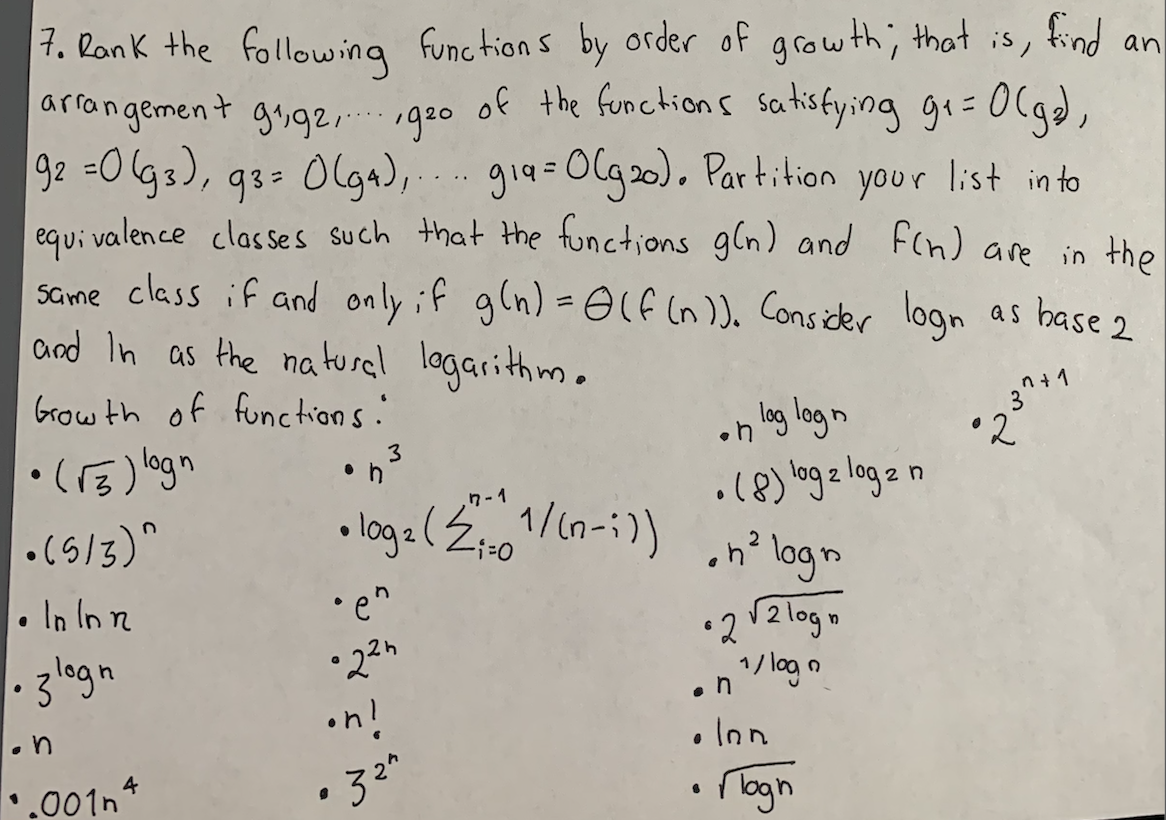 7. Rank the following functions by order of growth; that is, find an
arrangement g1,g2,....,g20 of the functions satisfying g1 = O(g2),
g2 = O(g3), g3 = O(g4),.... g19 = O(g20). Partition your list into
equivalence classes such that the functions g(n) and f(n) are in the
same class if and only if g(n) = Θ(f(n)). Consider logn as base 2
and ln as the natural logarithm.
Growth of functions:
• (√3)^logn
• (5/3)^n
• ln ln n
• 3^logn
• n
• .001n^4
• n^3
• log₂(∑_{i=0}^{n-1} 1/(n-i))
• e^n
• 2^2n
• n!
• 3^2^n
• n^log logn
• (8)^log2 log2 n
• n^2 logn
• 2^√(2logn)
• n^1/logn
• lnn
• √logn
• 2^3^n+1